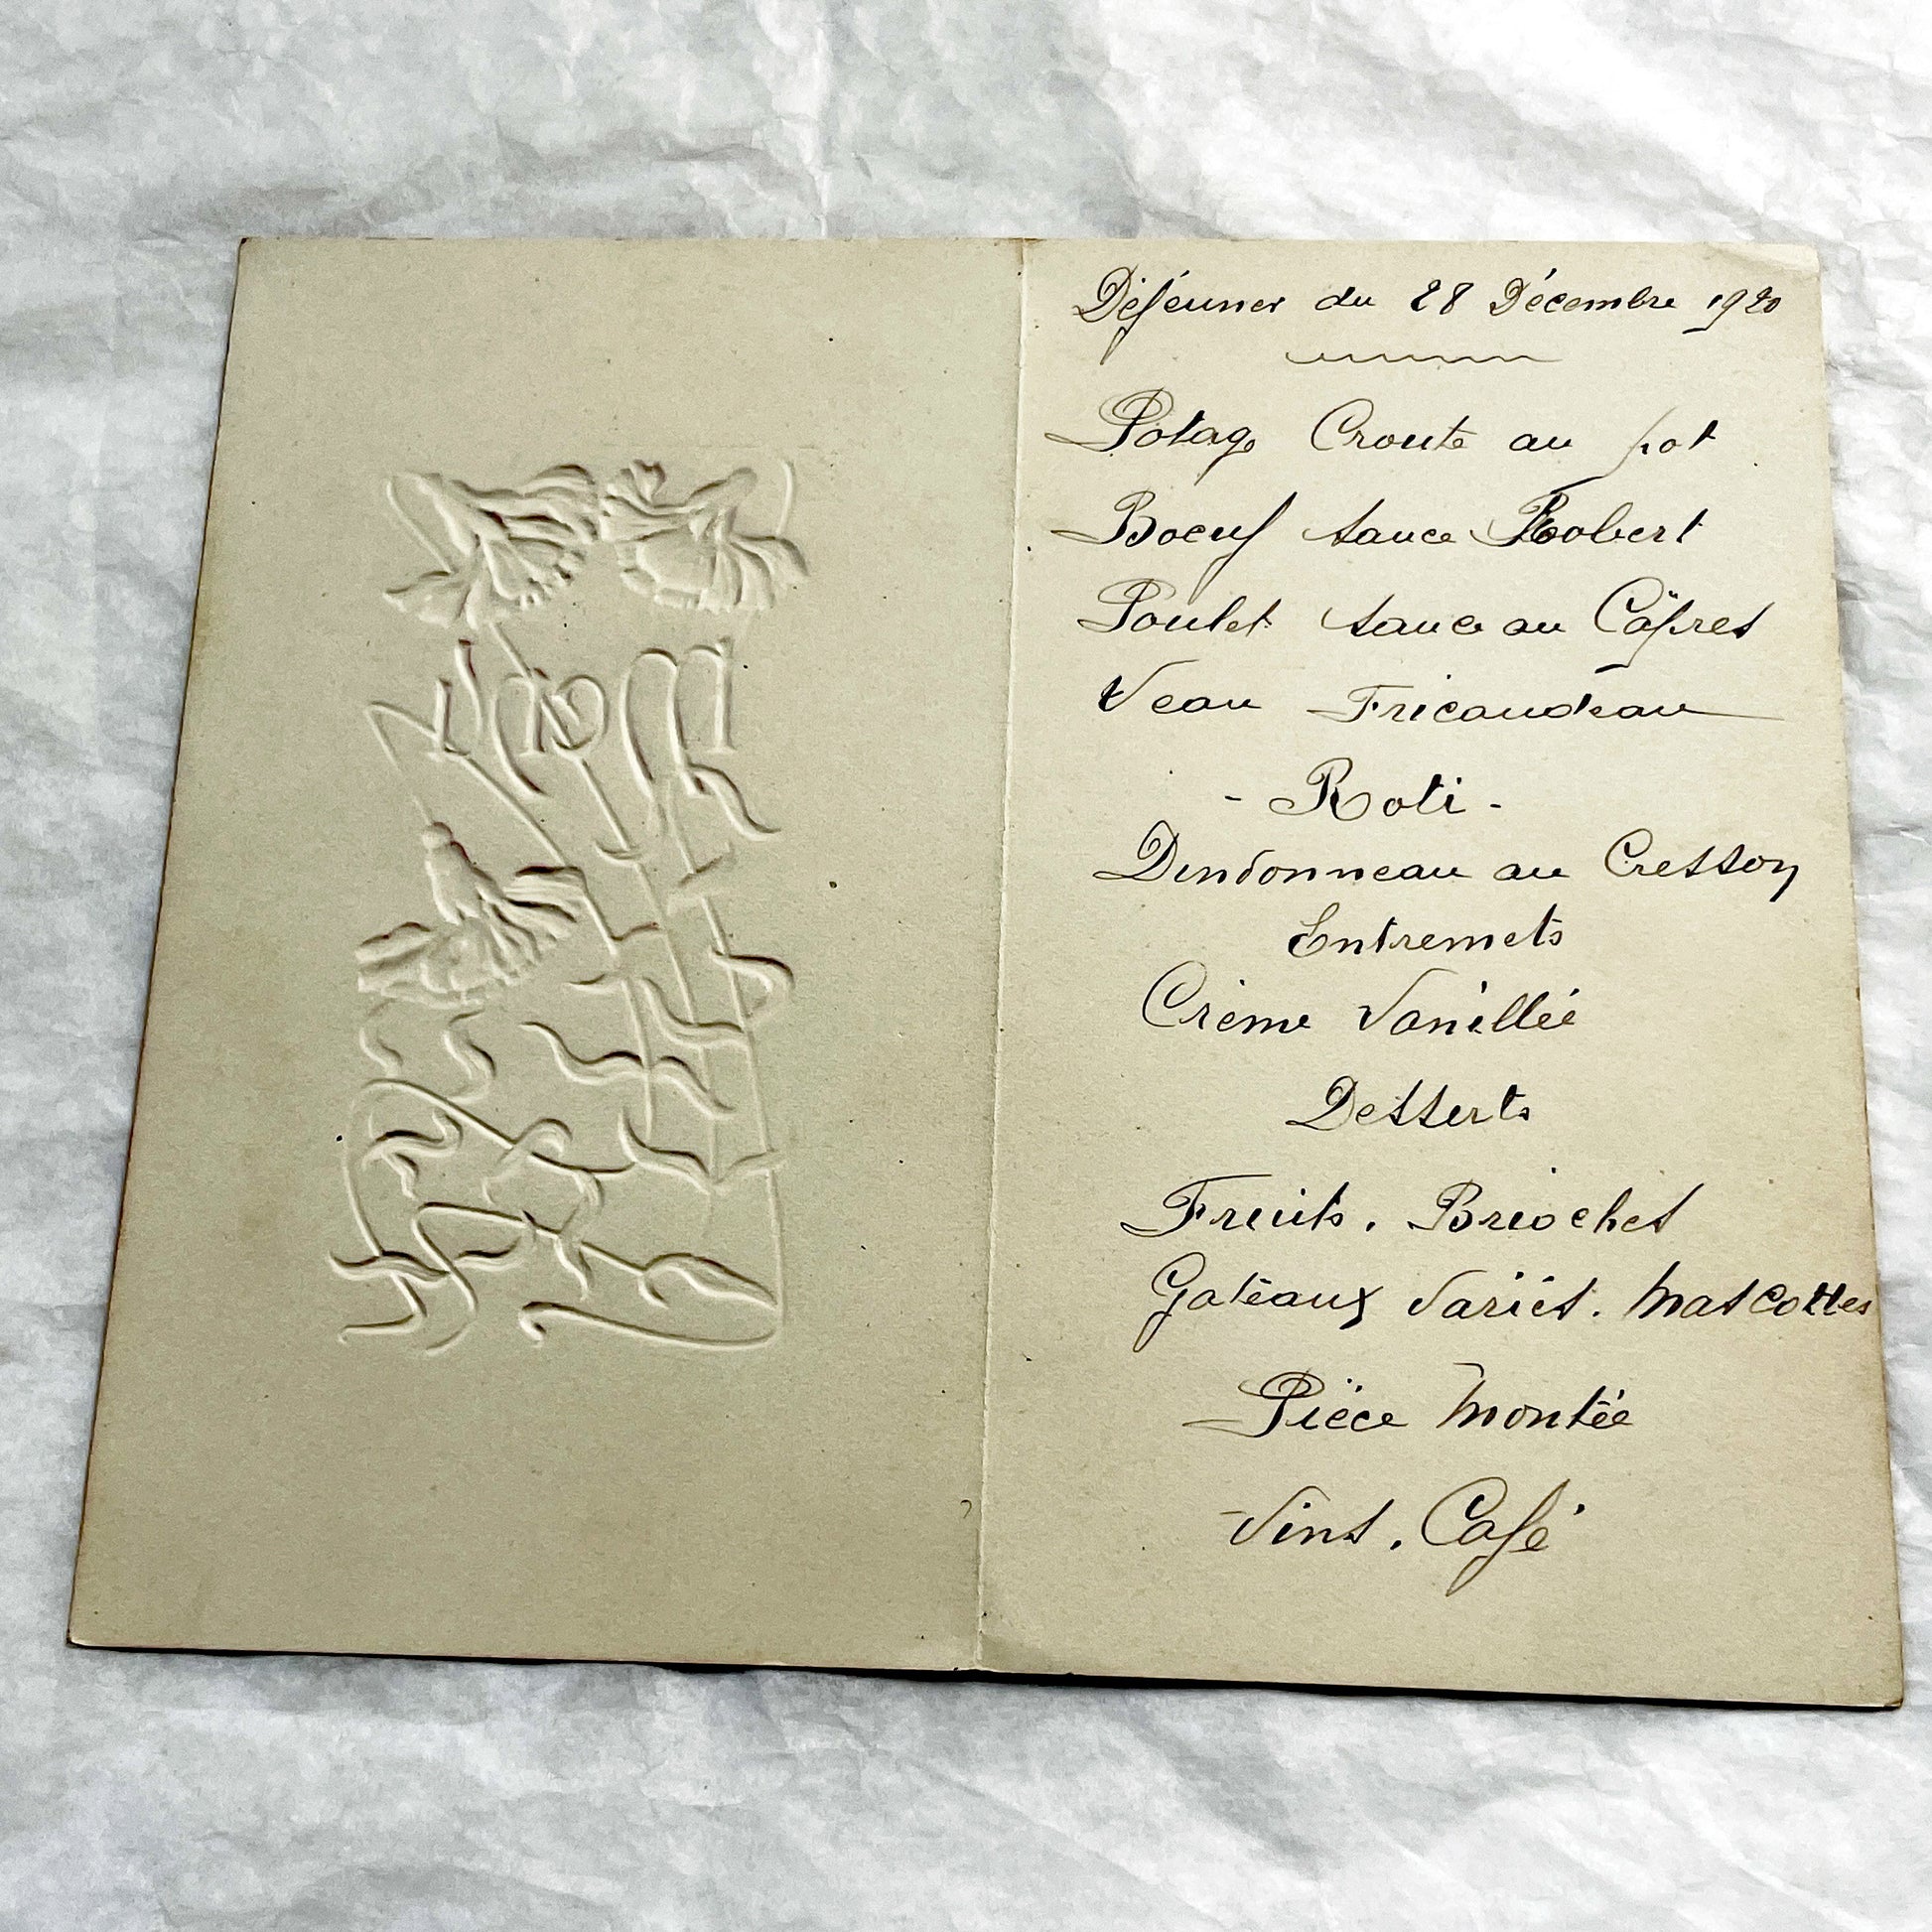 Déjeuner du 28 Décembre 1920
Potage Croute au pot
Boeuf sauce Robert
Poulet sauce au Câpres
Veau Fricaudeau
- Roti -
Dindonneau au Cresson
Entremets
Crème Vanillée
Desserts
Fruits. Brioches
Gateaux Variés. Mascottes
Pièce Montée
Vins. Café